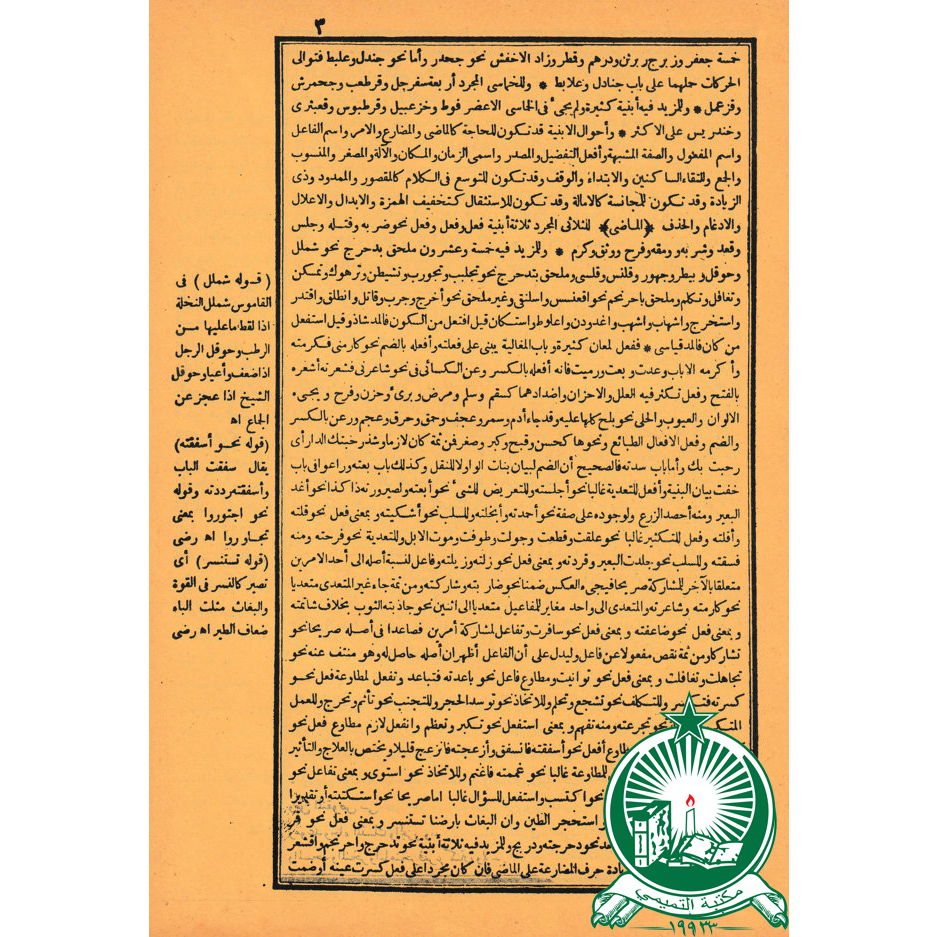 ٣
خمسة جعفر وزبرج وبرثن ودرهم وقطر وزاد الاخفش نحو جحدر وأما نحو جندل وعلبط فتوالى
الحركات حملهما على باب جنادل وعلابط * وللخماسى المجرد أربعة سفرجل وقرطعب وجحمرش
وقزعمل * وللمزيد فيه أبنية كثيرة ولم يجئ فى الخماسى الاعضرفوط وخزعبيل وقرطبوس وقبعثرى
وخندريس على الاكثر * وأحوال الابنية قد تكون للحاجة كالماضى والمضارع والامر واسم الفاعل
واسم المفعول والصفة المشبهة وأفعل التفضيل والمصدر واسمى الزمان والمكان والآلة والمصغر والمنسوب
والجمع والتقاء الساكنين والابتداء والوقف وقد تكون للتوسع فى الكلام كالمقصور والممدود وذى
الزيادة وقد تكون للمجانسة كالامالة وقد تكون للاستثقال كتخفيف الهمزة والابدال والاعلال
والادغام والحذف * (الماضى) للثلاثى المجرد ثلاثة أبنية فعل وفعل وفعل نحو ضربه وقتله وجلس
وقعد وشربه وومقه وفرح ووثق وكرم * وللمزيد فيه خمسة وعشرون ملحق بدحرج نحو شملل
وحوقل وبيطر وجهور وقلنس وقلسى وملحق بتدحرج نحو تجلبب وتجورب وتشيطن وترهوك وتمسكن
وتغافل وتكلم وملحق باحرنجم نحو اقعنسس واسلنقى وغير ملحق نحو أخرج وجرب وقاتل وانطلق واقتدر
واستخرج واشهاب واشهب واغدودن واعلوط واستكان قيل افتعل من السكون فالمد شاذ وقيل استفعل
من كان فالمد قياسى * ففعل لمعان كثيرة وباب المغالبة يبنى على فعلته وأفعله بالضم نحو كارمنى فكرمته
وأكرمه الا باب وعدت وبعت ورميت فانه أفعله بالكسر وعن الكسائى فى نحو شاعرنى فشعرته أشعره
بالفتح وفعل تكثر فيه العلل والاحزان وأضدادها كسقم وسلم ومرض وبرئ وحزن وفرح ويجىء
الالوان والعيوب والحلى نحو بلج كلها عليه وقد جاء أدم وسمر وعجف وحمق وخرق وعجم ورعن بالكسر
والضم وفعل الافعال الطبائع ونحوها كحسن وقبح وكبر وصغر فمن ثمة كان لازما وشذ رحبتك الدار أى
رحبت بك وأما باب سدته فالصحيح أن الضم لبيان بنات الواو لا للنقل وكذلك باب بعته وراعوا فى باب
خفت بيان البنية وأفعل للتعدية غالبا نحو أجلسته وللتعريض للشئ نحو أبعته ولصيرورته ذا كذا نحو أغد
البعير ومنه أحصد الزرع ولوجوده على صفة نحو أحمدته وأبخلته وللسلب نحو أشكيته وبمعنى فعل نحو قلته
وأقلته وفعل للتكثير غالبا نحو غلقت وقطعت وجولت وطوفت وموت الابل وللتعدية نحو فرحته ومنه
فسقته وللسلب نحو جلدت البعير وقردته وبمعنى فعل نحو زلته وزيلته وفاعل لنسبة أصله الى أحد الامرين
متعلقا بالآخر للمشاركة صريحا فيجىء العكس ضمنا نحو ضاربته وشاركته ومن ثمة جاء غير المتعدى متعديا
نحو كارمته وشاعرته والمتعدى الى واحد مغاير للمفاعل متعديا الى اثنين نحو جاذبته الثوب بخلاف شاتمته
وبمعنى فعل نحو ضاعفته وبمعنى فعل نحو سافرت وتفاعل لمشاركة أمرين فصاعدا فى أصله صريحا نحو
تشاركا ومن ثمة نقص مفعولا عن فاعل وليدل على أن الفاعل أظهر أن أصله حاصل له وهو منتف عنه نحو
تجاهلت وتغافلت وبمعنى فعل نحو توانيت ومطاوع فاعل نحو باعدته فتباعد وتفعل لمطاوعة فعل نحو
كسرته فتكسر وللتكلف نحو تشجع وتحلم وللاتخاذ نحو توسد الحجر وللتجنب نحو تأثم وتحرج وللعمل
نحو تجرعته ومنه تفهم وبمعنى استفعل نحو تكبر وتعظم وانفعل لازم مطاوع فعل نحو
مطاوع أفعل نحو أسفقته فانسفق وأزعجته فانزعج قليلا ويختص بالعلاج والتأثير
للمطاوعة غالبا نحو غممته فاغتم وللاتخاذ نحو اشتوى وبمعنى تفاعل نحو
نحو اكتسب واستفعل للسؤال غالبا اما صريحا نحو استكتبته أو تقديرا
استحجر الطين وان البغاث بارضنا تستنسر وبمعنى فعل نحو قر
نحو دحرجته ودربخ وللمزيد فيه ثلاثة أبنية نحو تدحرج واحرنجم واقشعر
حرف المضارعة على الماضى فان كان مجردا على فعل كسرت عينه أو ضمت
(قوله شملل) فى
القاموس شملل النخلة
اذا لقط ما عليها من
الرطب وحوقل الرجل
اذا ضعف وأعيا وحوقل
الشيخ اذا عجز عن
الجماع اه
(قوله نحو أسفقته)
يقال سفقت الباب
وأسفقته رددته وقوله
نحو اجتوروا بمعنى
تجاوروا اه رضى
(قوله تستنسر) أى
تصير كالنسر فى القوة
والبغاث مثلث الباء
ضعاف الطير اه رضى
مكتبة التميمي
١٩٩٣٣